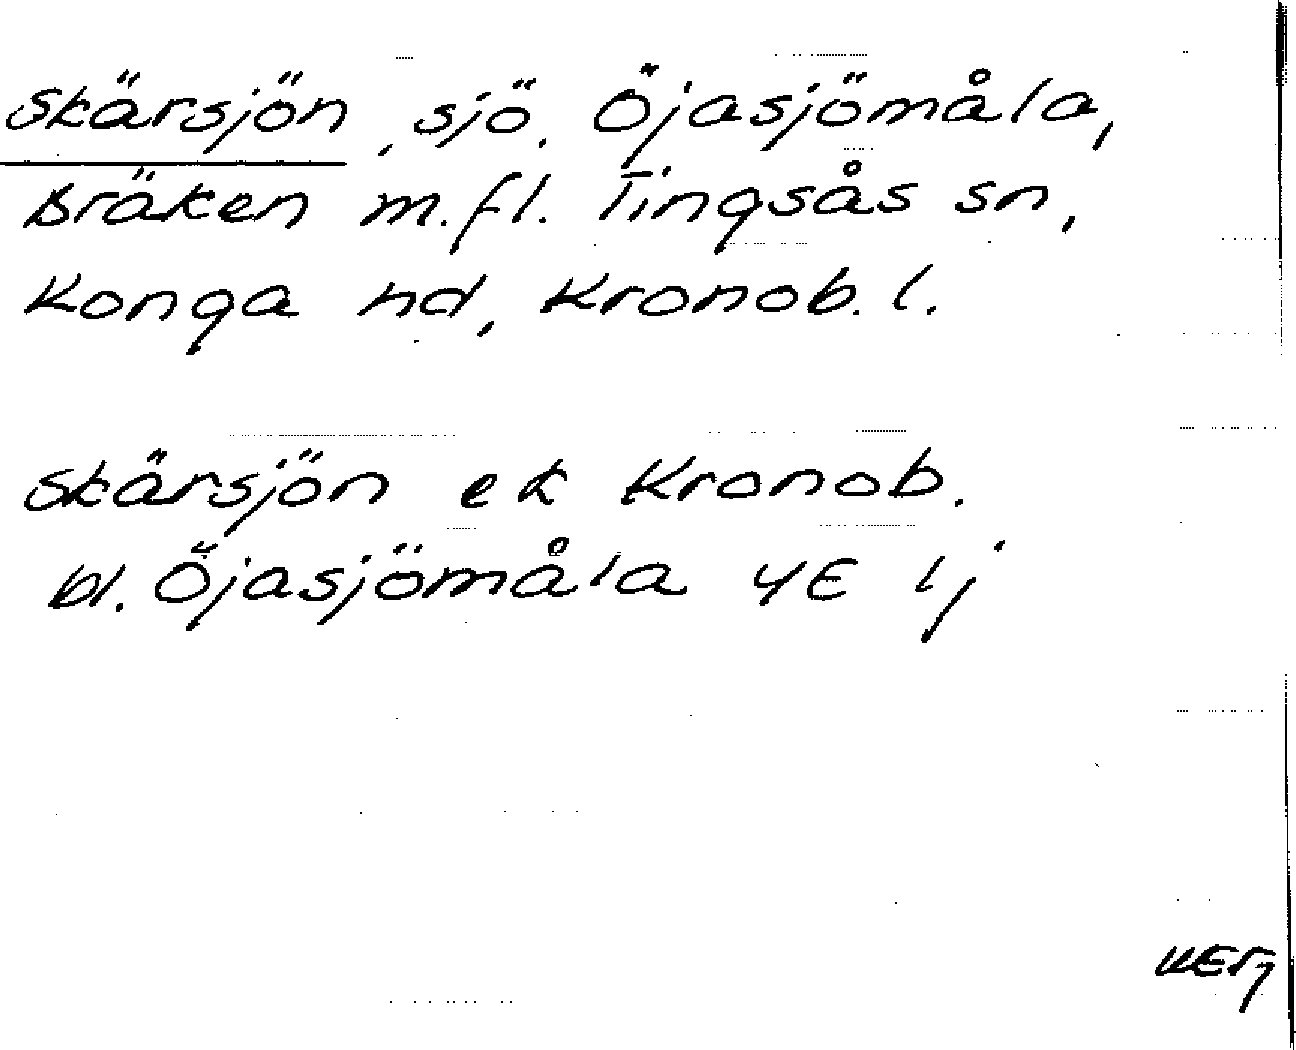 Skärsjön, sjö. Öjasjömåla,
Bräken m.fl. Tingsås sn,
Konga hd, Kronob. l.
Skärsjön ek Kronob.
bl. Öjasjömåla 4E lj